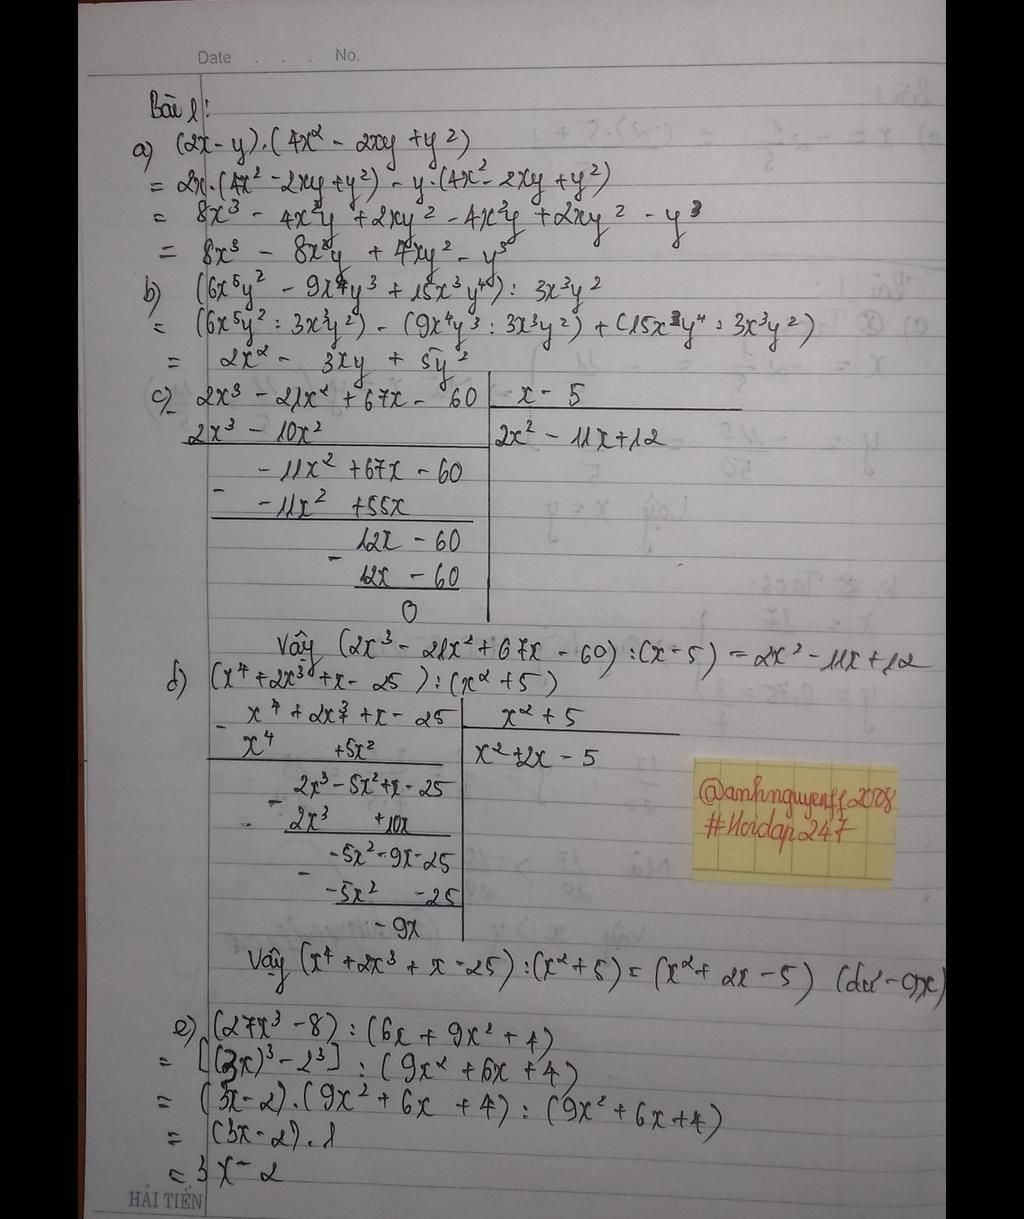 Date . . . No.
Bài 1:
a) (2x-y).(4x² - 2xy + y²)
= 2x.(4x² - 2xy + y²) - y.(4x² - 2xy + y²)
= 8x³ - 4x²y + 2xy² - 4x²y + 2xy² - y³
= 8x³ - 8x²y + 4xy² - y³
b) (6x⁵y² - 9x⁴y³ + 15x³y⁴) : 3x³y²
= (6x⁵y² : 3x³y²) - (9x⁴y³ : 3x³y²) + (15x³y⁴ : 3x³y²)
= 2x² - 3xy + 5y²
c) 2x³ - 21x² + 67x - 60 | x - 5
- 2x³ - 10x² | 2x² - 11x + 12
- 11x² + 67x - 60
- - 11x² + 55x
12x - 60
- 12x - 60
0
Vậy (2x³ - 21x² + 67x - 60) : (x - 5) = 2x² - 11x + 12
d) (x⁴ + 2x³ + x - 25) : (x² + 5)
- x⁴ + 2x³ + x - 25 | x² + 5
x⁴ + 5x² | x² + 2x - 5
2x³ - 5x² + x - 25
- 2x³ + 10x
-5x² - 9x - 25
- -5x² - 25
- 9x
Vậy (x⁴ + 2x³ + x - 25) : (x² + 5) = (x² + 2x - 5) (dư - 9x)
@anhnguyenff2008
#Hoidap247
e) (27x³ - 8) : (6x + 9x² + 4)
= [(3x)³ - 2³] : (9x² + 6x + 4)
= (3x - 2).(9x² + 6x + 4) : (9x² + 6x + 4)
= (3x - 2).1
= 3x - 2
HẢI TIẾN